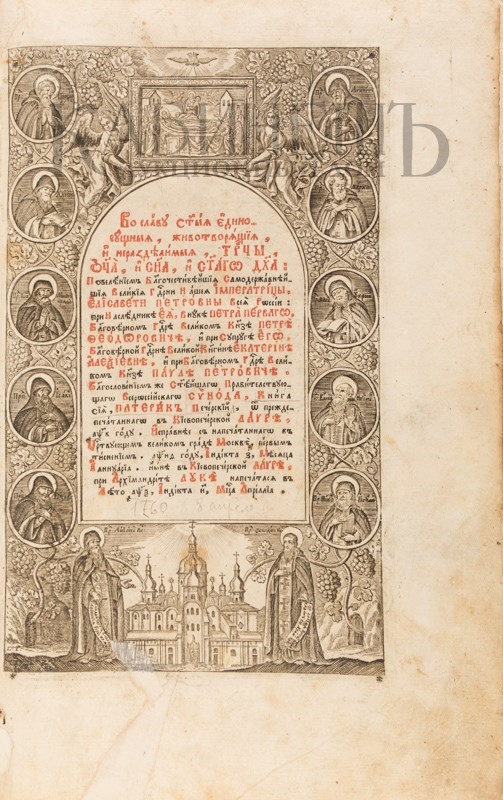 КАБИНЕТЪ
Во славу Ст҃ыѧ Єдино-
сущныѧ, животворѧ́щїѧ,
и҆ нераздѣлимыѧ, ТРЦ҃Ы,
Ѻ҆Ц҃А̀, и҆ СН҃А, и҆ СТ҃АГѠ ДХ҃А:
Повелѣнїемъ Благочестивѣйшїѧ Самодержавнѣй-
шїѧ Великїѧ Гдⷭ҇рни Нашеѧ ИМПЕРАТРИЦЫ,
ЕЛІСАВЕТИ ПЕТРОВНЫ всеѧ Рѡссїи:
при Наслѣдникѣ ЕѦ, Внукѣ ПЕТРА ПЕРВАГѠ,
Благовѣрномъ Гдⷭ҇рѣ Великомъ Кн҃зѣ ПЕТРѢ
ѲЕОДѠРОВИЧѢ, и҆ при Супругѣ ЕГѠ,
Благовѣрной Гдⷭ҇рнѣ Великой Кнѧгинѣ ЕКАТЕРИНѢ
АЛЕѮІЕВНѢ, и҆ при Благовѣрномъ Гдⷭ҇рѣ Вели-
комъ Кн҃зѣ ПАУЛѢ ПЕТРОВИЧѢ.
Благословенїемъ же Ст҃ѣйшагѡ Правителствую-
щагѡ Всерѡссїйскагѡ СУНОДА, Книга
сїѧ, ПАТЕРИКЪ пече́рскїй, ѿ прежде-
печатаннагѡ въ Кїевопечерской ЛАУРѢ,
году. Исправнѣе съ напечатаннагѡ въ
Цртвующемъ великомъ градѣ Москвѣ, первымъ
тисненїемъ. году, Індікта з҃, Мѣсѧца
Іаннуарїа. нынѣ въ Кїевопечерской ЛАУРѢ,
при Архїмандрітѣ ЛУКѢ напечатасѧ въ
Лѣто ҂аѱ҃ѯ, Індікта и҃, Мц҃а Апрїллїа.
1760